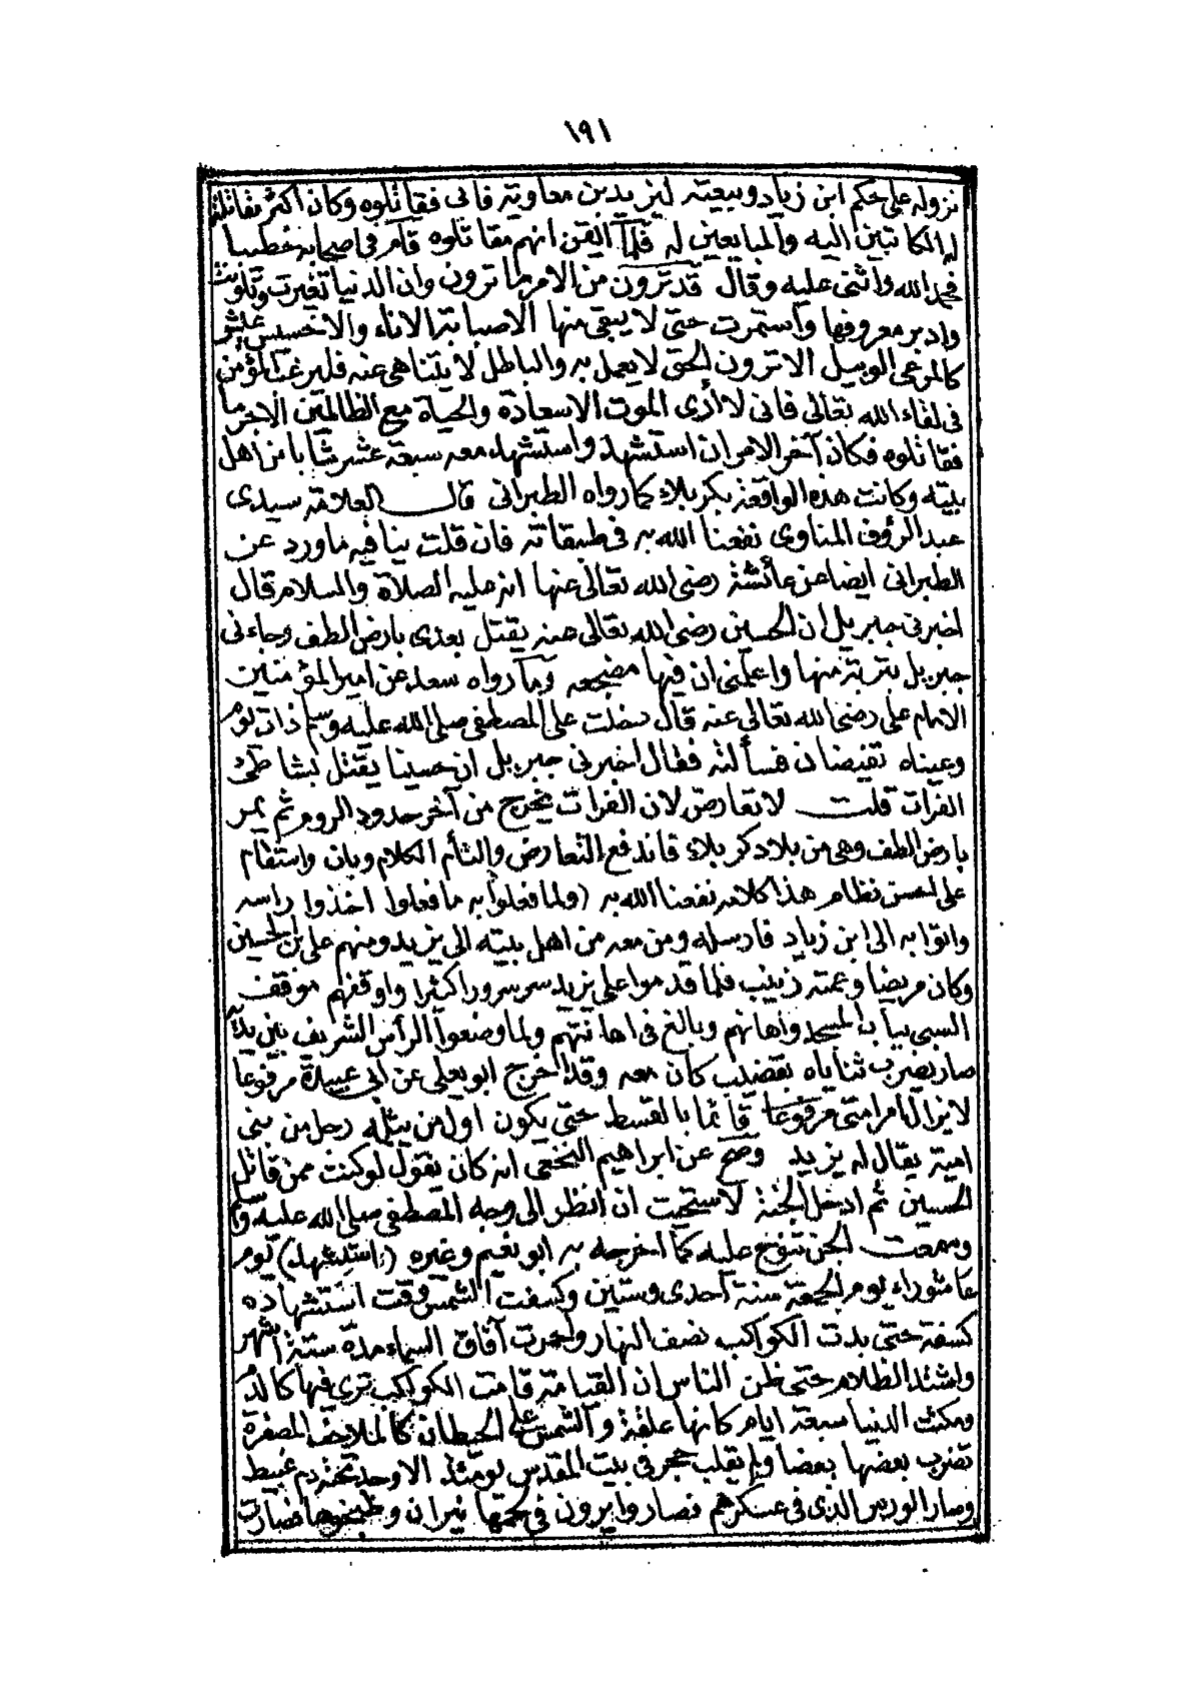 ١٩١
نزوله على حكم ابن زياد وبيعته ليزيد بن معاوية فابى فقاتلوه وكان اكثر مقاتلته
له المكاتبين اليه والمبايعين له فلما ايقن انهم مقاتلوه قام في اصحابه خطيبا
فحمد الله واثنى عليه وقال قد ترون من الامر ما ترون وان الدنيا تغيرت وتلونت
وادبر معروفها واستمرت حتى لا يبقى منها الا صبابة الاناء والا خسيس عيش
كالمرعى الوبيل الا ترون الحق لا يعمل به والباطل لا يتناهى عنه فليرغب المؤمن
في لقاء الله تعالى فانى لا أرى الموت الا سعادة والحياة مع الظالمين الا جرما
فقاتلوه فكان آخر الامر ان استشهد واستشهد معه سبعة عشر شابا من اهل
بيته وكانت هذه الواقعة بكربلاء كما رواه الطبرانى قال العلامة سيدى
عبد الرؤف المناوى نفعنا الله به في طبقاته فان قلت ينافيه ما ورد عن
الطبرانى ايضا عن عائشة رضى الله تعالى عنها انه عليه الصلاة والسلام قال
اخبرنى جبريل ان الحسين رضى الله تعالى عنه يقتل بعدى بارض الطف وجاءنى
جبريل بتربة منها واعلمنى ان فيها مضجعه وما رواه سعد عن امير المؤمنين
الامام على رضى الله تعالى عنه قال دخلت على المصطفى صلى الله عليه وسلم ذات يوم
وعيناه تفيضان فسألته فقال اخبرنى جبريل ان حسينا يقتل بشاطئ
الفرات قلت لا تعارض لان الفرات يخرج من آخر حدود الروم ثم يمر
بارض الطف وهى من بلاد كربلاء فاندفع التعارض والتأم الكلام وبان واستقام
على احسن نظام هذا كلامه نفعنا الله به (ولما فعلوا به ما فعلوا اخذوا راسه
واتوا به الى ابن زياد فارسله ومن معه من اهل بيته الى يزيد ومنهم على بن الحسين
وكان مريضا وعمته زينب فلما قدموا على يزيد سر سرورا كثيرا واوقفهم موقف
السبى بباب المسجد واهانهم وبالغ في اهانتهم ولما وضعوا الرأس الشريف بين يديه
صار يضرب ثناياه بقضيب كان معه وقد اخرج ابو يعلى عن ابى عبيدة مرفوعا
لا يزال امر امتى مرفوعا قائما بالقسط حتى يكون اول من يثلمه رجل من بنى
امية يقال له يزيد وصح عن ابراهيم النخعى انه كان يقول لو كنت ممن قاتل
الحسين ثم ادخل الجنة لاستحيت ان انظر الى وجه المصطفى صلى الله عليه وسلم
وسمعت الجن تنوح عليه كما اخرجه به ابو نعيم وغيره (استشهد) يوم
عاشوراء يوم الجمعة سنة احدى وستين وكسفت الشمس وقت استشهاده
كسفة حتى بدت الكواكب نصف النهار واحمرت آفاق السماء مدة ستة اشهر
واشتد الظلام حتى ظن الناس ان القيامة قامت الكواكب ترى فيها كالدم
ومكثت الدنيا سبعة ايام كانها علقة والشمس على الحيطان كالملاحف المصفرة
تضرب بعضها بعضا ولم يقلب حجر في بيت المقدس يومئذ الا وجد تحته دم عبيط
وصار الورس الذى في عسكرهم فصاروا يرون في لحمها نيران وطبخوها فصارت